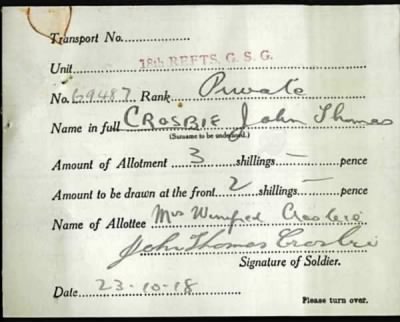 Transport No.
Unit 18th REFTS. G. S. G.
No. 69487 Rank Private
Name in full CROSBIE John Thomas
(Surname to be underlined.)
Amount of Allotment 3 shillings — pence
Amount to be drawn at the front 2 shillings — pence
Name of Allottee Mrs Winifred Crosbie
John Thomas Crosbie
Signature of Soldier.
Date 23-10-18
Please turn over.